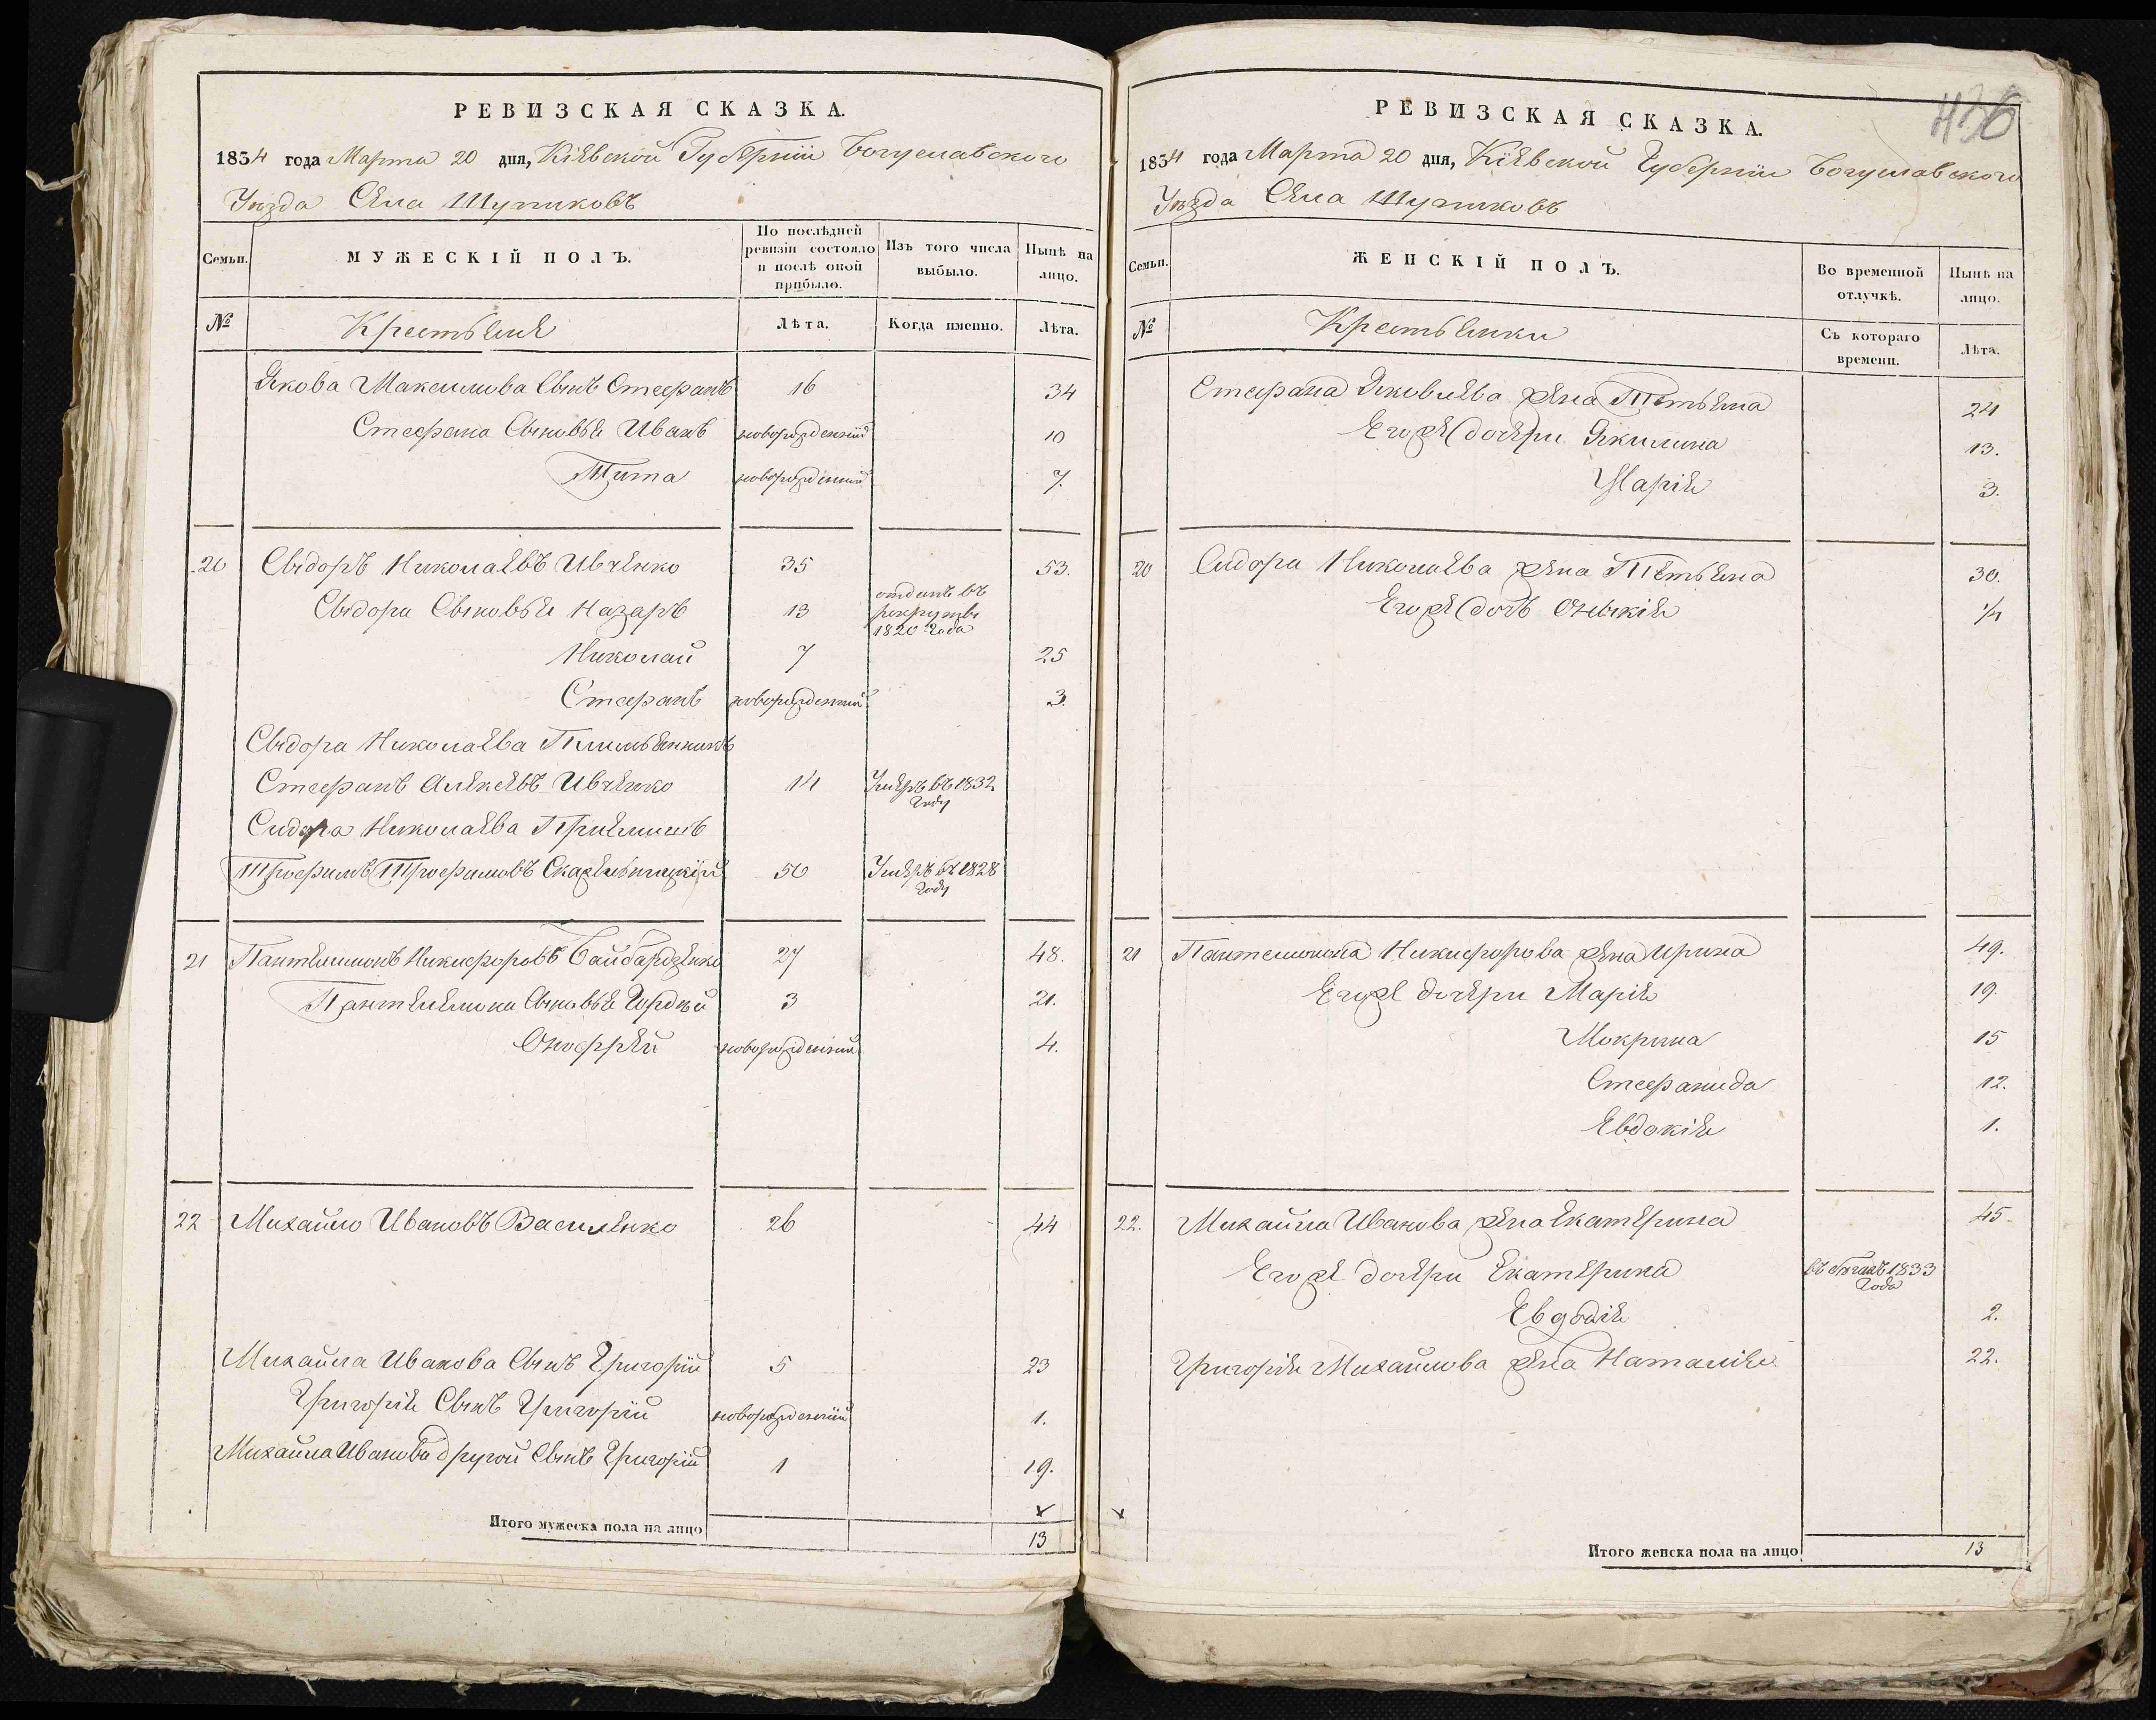 РЕВИЗСКАЯ СКАЗКА.
1834 года Марта 20 дня, Кіевской Губерніи Богуславского
Уѣзда Села Шупиковъ
Семьи. МУЖЕСКІЙ ПОЛЪ. По послѣдней ревизіи состояло и послѣ оной прибыло. Изъ того числа выбыло. Нынѣ на лицо.
№ Крестьяне Лѣта. Когда именно. Лѣта.
Якова Максимова Сынъ Стефанъ 16 34
Стефана Сыновья Иванъ новорожденный 10
Тита новорожденный 7.
20 Сыдоръ Николаевъ Ивченко 35 53.
Сыдора Сыновья Назаръ 13 отданъ въ рекруты 1820 года
Николай 7 25
Стефанъ новорожденный 3.
Сыдора Николаева Племянникъ
Стефанъ Алексѣевъ Ивченко 14 Умеръ въ 1832 году
Сидора Николаева Приемышъ
Трофимъ Трофимовъ 50 Умеръ въ 1828 году
21 Пантелимонъ Никифоровъ 27 48.
Пантелемона Сыновья Гордѣй 3 21.
Онофрей новорожденный 4.
22 Михайло Ивановъ Василенко 26 44
Михайла Иванова Сынъ Григорій 5 23
Григорія Сынъ Григорій новорожденный 1.
Михайла Иванова другой Сынъ Григорій 1 19.
Итого мужеска пола на лицо 13
436
РЕВИЗСКАЯ СКАЗКА.
1834 года Марта 20 дня, Кіевской Губерніи Богуславского
Уѣзда Села Шупиковъ
Семьи. ЖЕНСКІЙ ПОЛЪ. Во временной отлучкѣ. Нынѣ на лицо.
№ Крестьянки Съ котораго времени. Лѣта.
Стефана Яковлева жена Тетьяна 24
Его же дочери Якилина 13.
Марія 3.
20 Сидора Николаева жена Тетьяна 30.
Его же дочь
21 Пантелимона Никифорова жена Ирина 49.
Его же дочери Марія 19.
Мокрина 15
Стефанида 12.
Евдокія 1.
22. Михайла Иванова жена Екатерина 45.
Его же дочери Екатерина въ бѣгахъ 1833 года
2.
Григорія Михайлова жена Наталія 22.
Итого женска пола на лицо 13